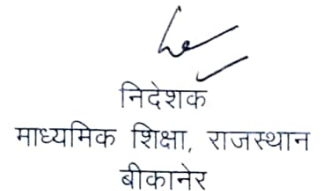 निदेशक
माध्यमिक शिक्षा, राजस्थान
बीकानेर